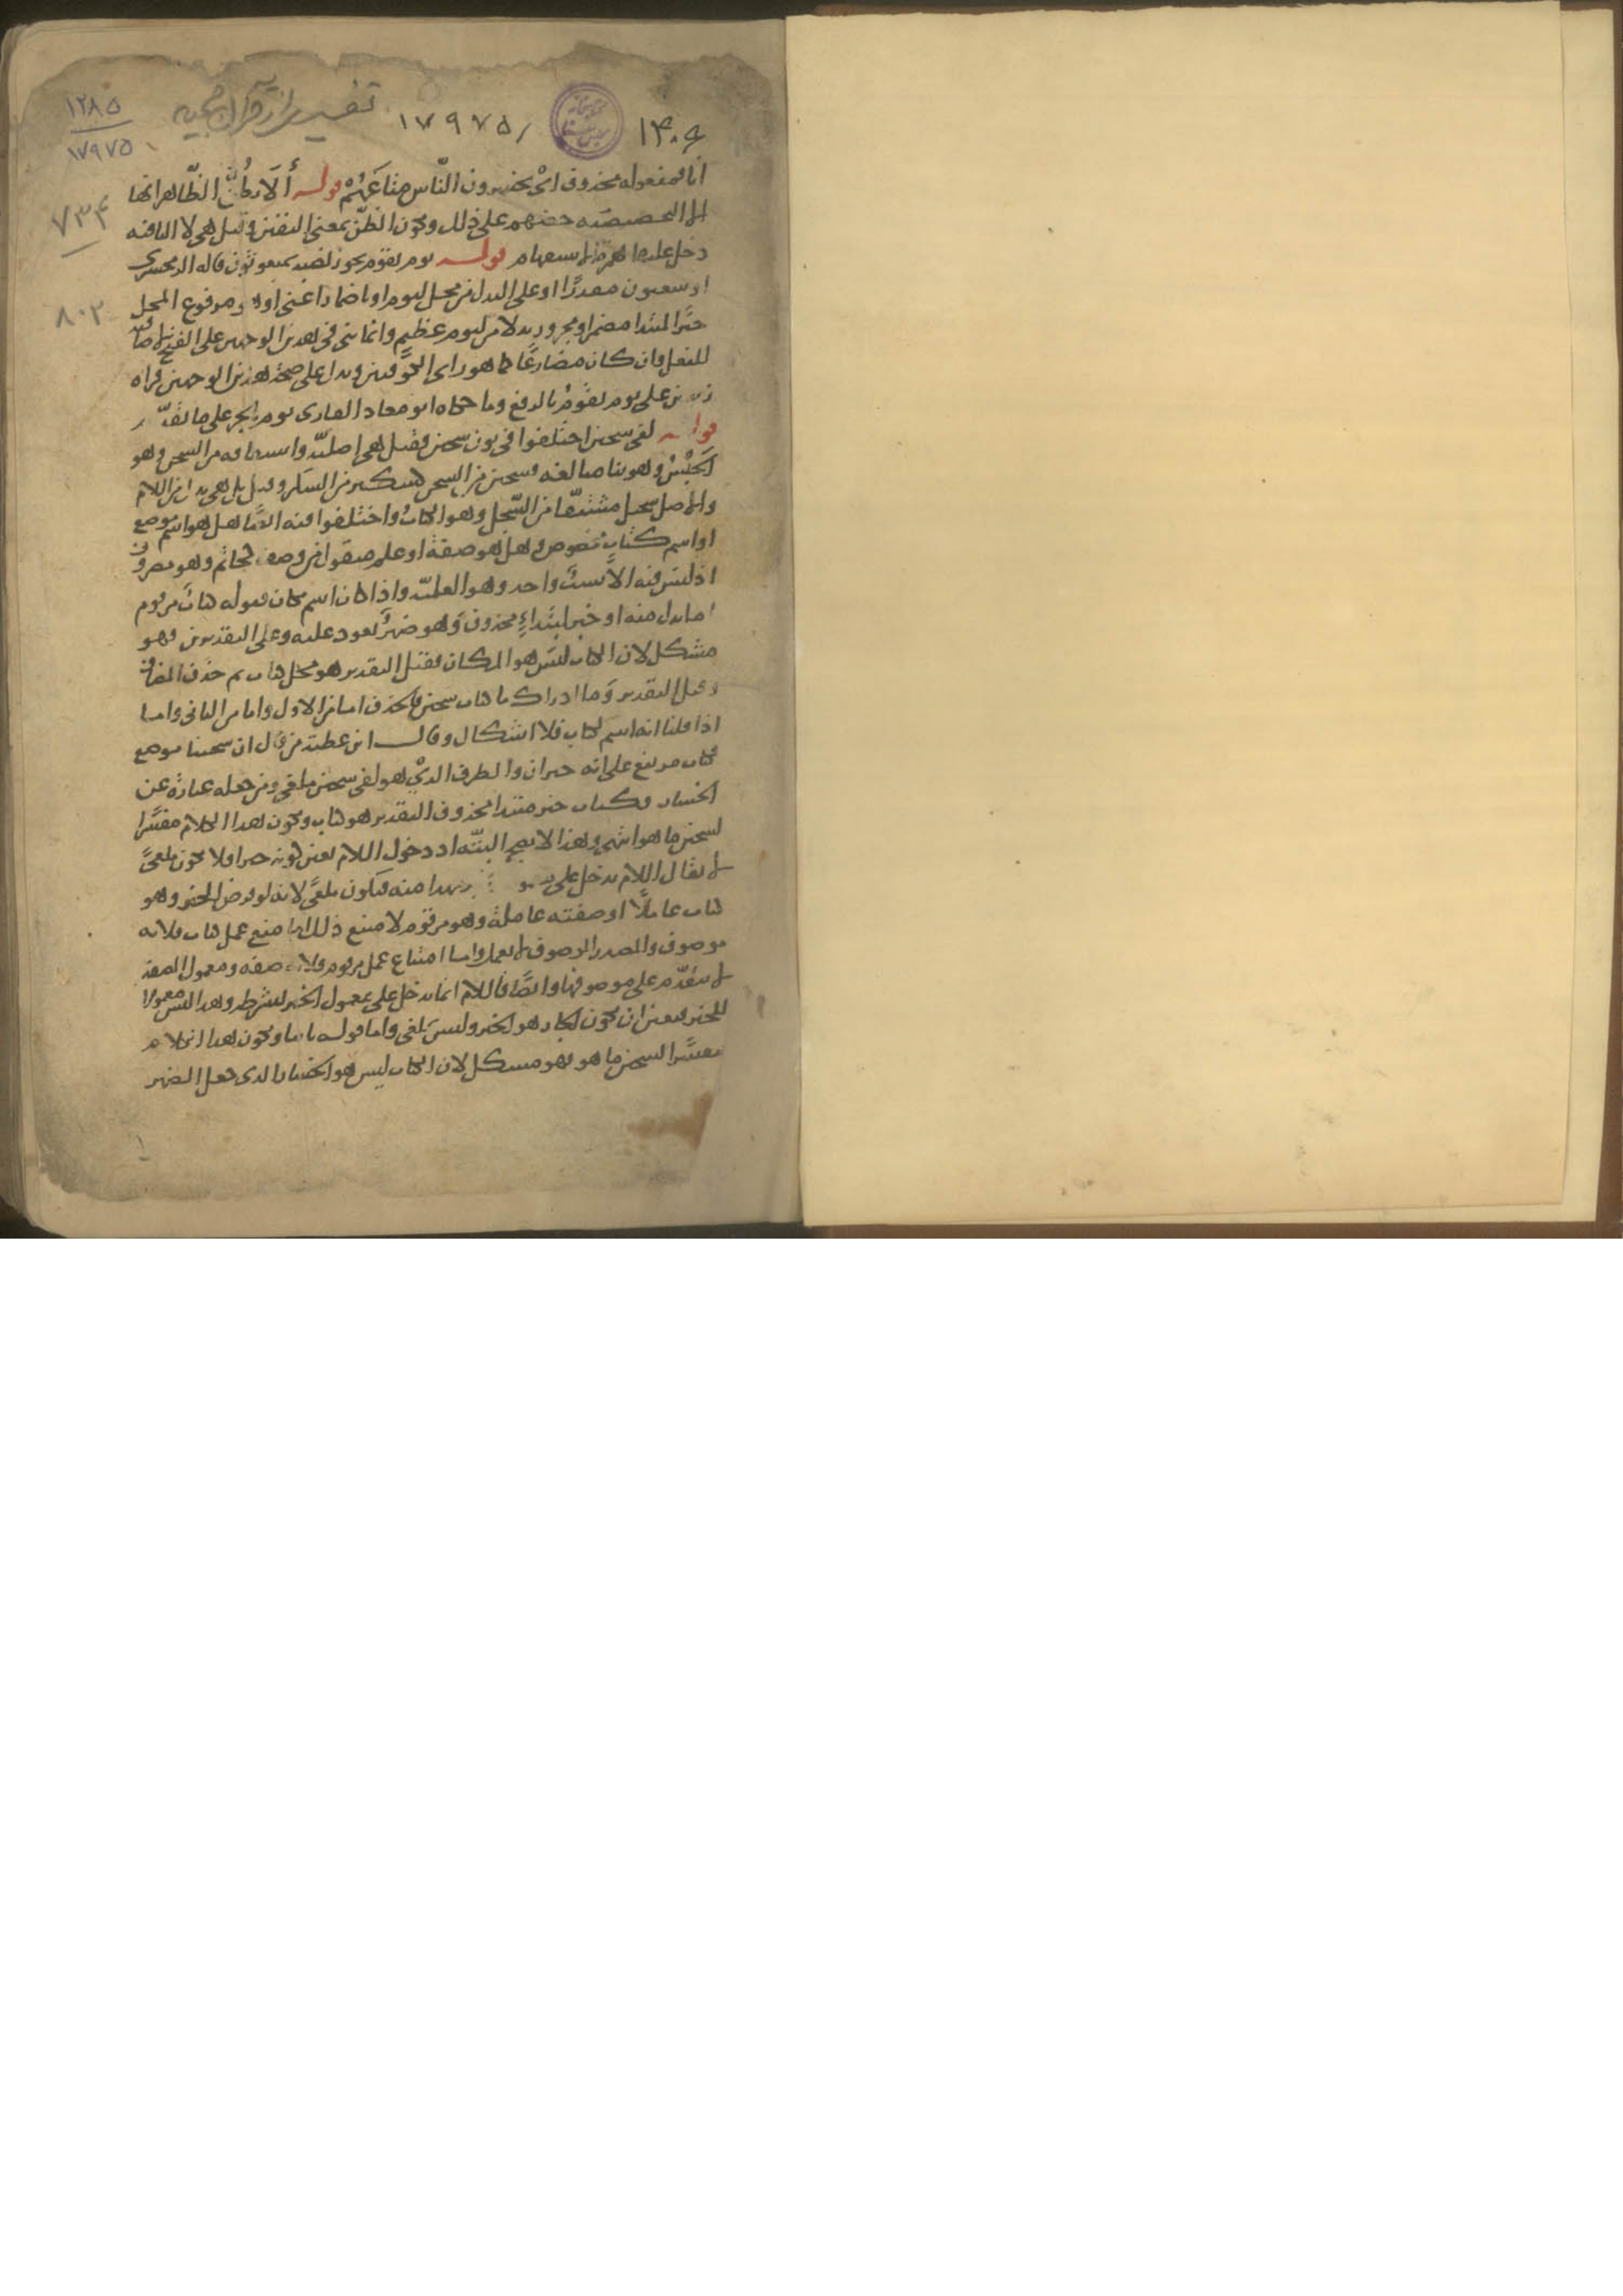 تفسیر از قرآن مجید
۱۲۸۵
۱۷۹۷۵
۱۷۹۷۵
۱۴۰۹
۷۳۴
۸۰۳
محذوف ای یخسرون الناس متاعهم قوله ألا یظن الظاهر انها
التحضیضیه حضهم علی ذلک ویکون الظن بمعنی الیقین وقیل هی لا النافیه
دخل علیها همزة الاستفهام قوله یوم یقوم یجوز نصبه بمبعوثون قاله الزمخشری
او یبعثون مقدرًا او علی البدل من محل لیوم او باضمار اعنی او هو مرفوع المحل
خبرًا لمبتدا مضمر او مجرور بدلا من لیوم عظیم وانما بنی فی هذین الوجهین علی الفتح لاضافته
للفعل وان کان مضارعًا کما هو رای الکوفیین ویدل علی صحة هذین الوجهین قراة
زید بن علی یوم یقومُ بالرفع وما حکاه ابو معاذ القاری یوم بالجر علی ما تقدم
قوله لفی سجین اختلفوا فی نون سجین فقیل هی اصلیة واشتقاقه من السجن وهو
الحبس وهو بنا مبالغه فسجین من السجن کسکیر من السکر وقیل بل هی بدل من اللام
والاصل سجیل مشتقًا من السجل وهو الکتاب واختلفوا فیه ایضًا هل هو اسم موضع
او اسم کتاب مخصوص وهل هو صفة او علم منقول من وصف کحاتم وهو مصروف
اذ لیس فیه الا سبب واحد وهو العلمیة واذا کان اسم مکان فقوله کتاب مرقوم
اما بدل منه او خبر لمبتداءٍ محذوف وهو ضمیر یعود علیه وعلی التقدیرین فهو
مشکل لان الکتاب لیس هو المکان فقیل التقدیر هو محل کتاب ثم حذف المضاف
وقیل التقدیر وما ادراک ما کتاب سجین فالحذف اما من الاول واما من الثانی واما
اذا قلنا انه اسم لکتاب فلا اشکال وقال ابن عطیة من قال ان سجینا موضع
فکتاب مرتفع علی انه خبر ان والظرف الذی هو لفی سجین ملغی ومن جعله عبارة عن
الخسار فکتاب خبر مبتدا محذوف التقدیر هو کتاب ویکون هذا الکلام مفسرًا
لسجین ما هو انتهی وهذا لا یصح البتة اذ دخول اللام یعین کونه خبرا فلا یکون ملغیً
لا یقال اللام تدخل علی فیکون ملغیً لانه لو فرض الخبر وهو
کتاب عاملًا او صفته عاملة وهو مرقوم لامتنع ذلک اما منع عمل کتاب فلانه
موصوف والمصدر الموصوف لا یعمل واما امتناع عمل مرقوم فلانه صفه ومعمول الصفه
لا یتقدم علی موصوفها وایضًا فاللام انما تدخل علی معمول الخبر بشرطه وهذا لیس معمولا
للخبر فتعین ان یکون الجار هو الخبر ولیس بملغی واما قوله ثانیا ویکون هذا الکلام
مفسرًا لسجین ما هو فهو مشکل لان الکتاب لیس هو الخسار الذی جعل الضمیر